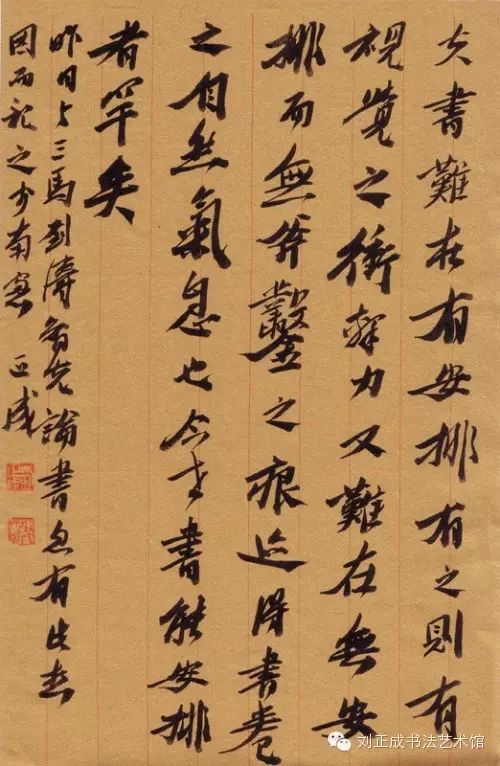 夫書難在有安排有之則有
視覺之衝擊力又難在無安
排而無斧鑿之痕迹得書卷
之自然氣息也今之書能安排
者罕矣
昨日与三馬到濤舍先論書忽有此去
因而記之於南窗 正成
刘正成书法艺术馆